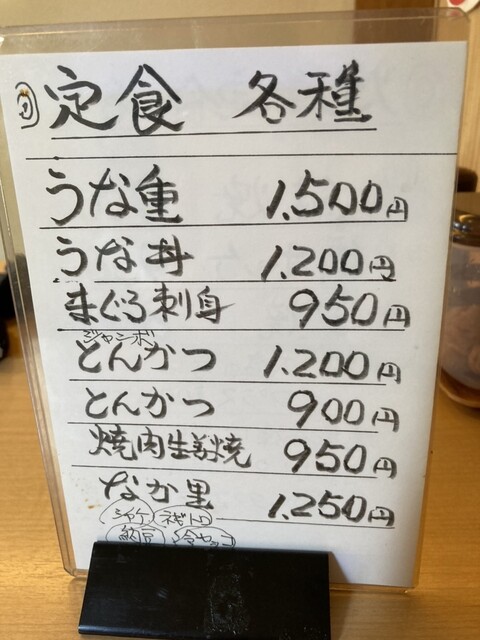 定食 各種
うな重 1,500円
うな丼 1,200円
まぐろ刺身 950円
ジャンボ
とんかつ 1,200円
とんかつ 900円
焼肉生姜焼 950円
なか里 1,250円
シャケ ネギトロ
納豆 冷ヤッコ